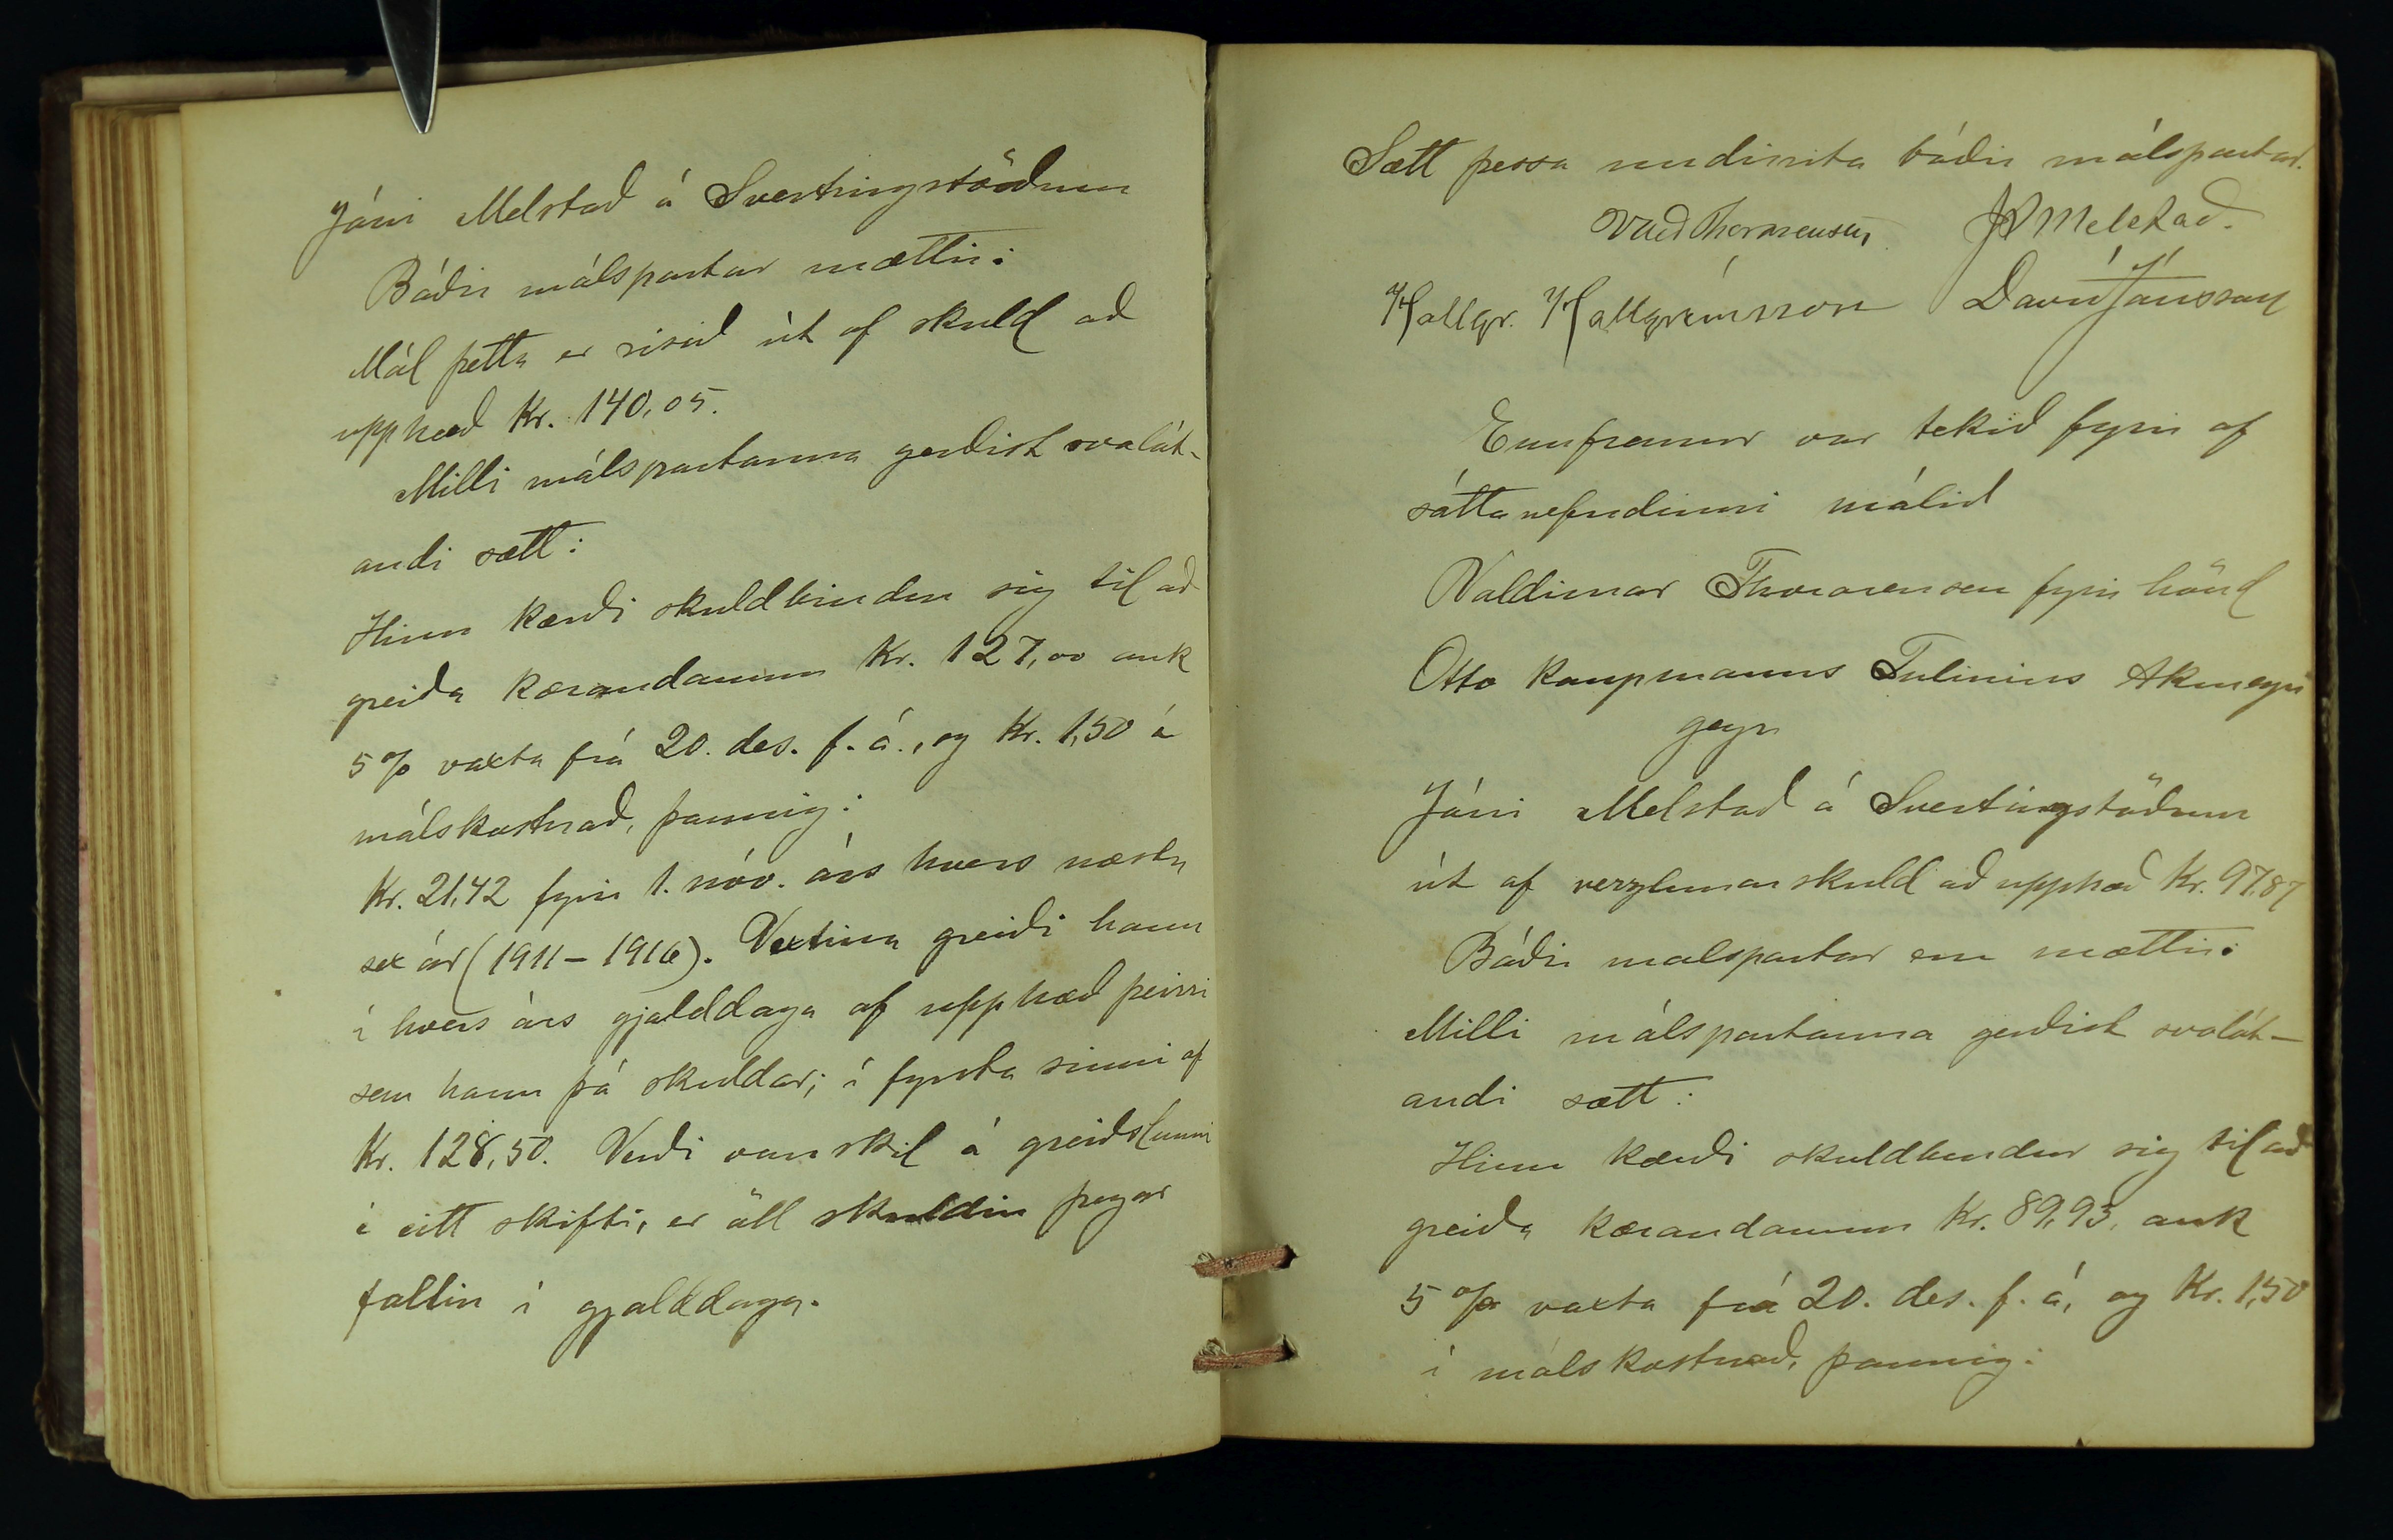 Jóni Melstað á Svertingsstöðum
Báðir málspartar mættir.
Mál þetta er risið út af skuld að
upphæð Kr. 140,05.
Milli málspartanna gerðist svolát-
andi sætt:
Hinn kærði skuldbindur sig til að
greiða kærandanum Kr. 127,00 auk
5% vaxta frá 20. des. f. á., og Kr. 1,50 í
málskostnað, þannig:
Kr. 21,42 fyrir 1. nóv. árs hvers næstu
sex ár (1911 – 1916). Vextina greiði hann
í hvers árs gjalddaga af upphæð þeirri
sem hann þá skuldar; í fyrsta sinni af
Kr. 128,50. Verði vanskil á greiðslunni
í eitt skifti, er öll skuldin þegar
fallin í gjalddaga.
Sætt þessa undirrita báðir málspartar.
Vald Thorarensen JM Melstað.
Hallgr. Hallgrímsson Davíð Jónsson
Ennfremur var tekið fyrir af
sáttanefndinni málið
Valdimar Thorarensen fyrir hönd
Otto kaupmanns Tulinius Akureyri
gegn
Jóni Melstað á Svertingstöðum
út af verzlunarskuld að upphæð Kr. 97.87
Báðir malspartar eru mættir.
Milli málspartanna gerðist svolát-
andi sætt:
Hinn kærði skuldbindur sig til að
greiða kærandanum Kr. 89,93, auk
5% vaxta frá 20. des. f. á, og Kr. 1,50
í málskostnað, þannig: